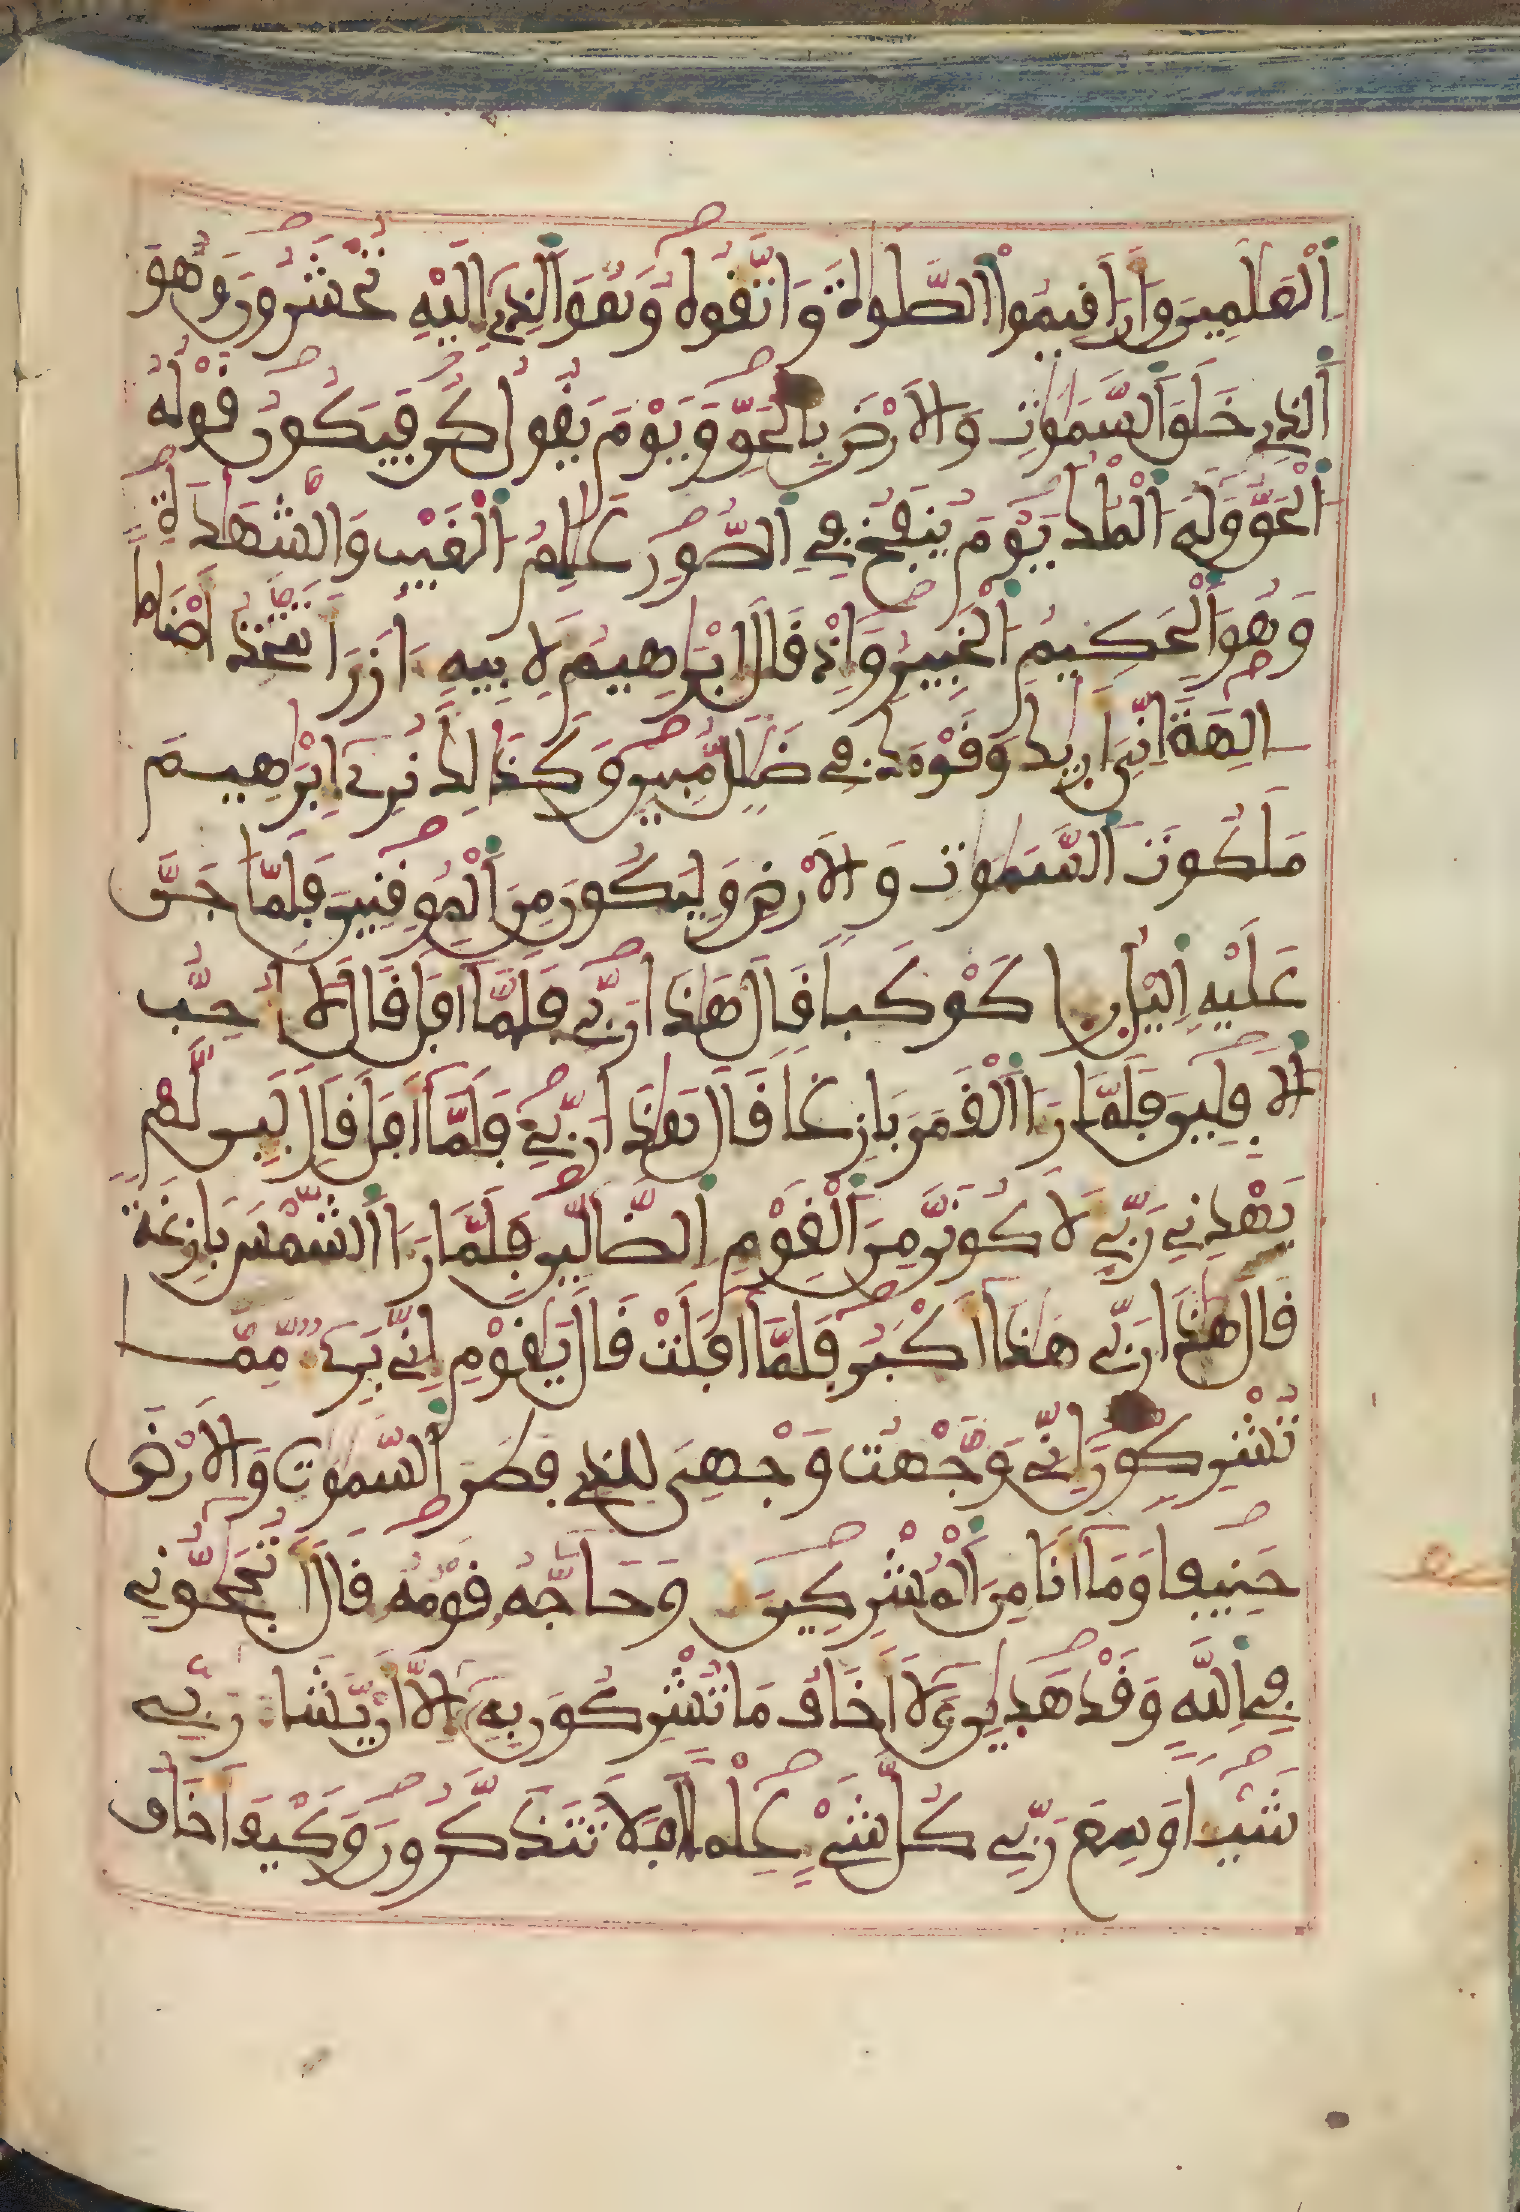 اَ۬لْعَٰلَمِينَ وَأَنَ اَقِيمُوا۟ اُ۬لصَّلَوٰةَ وَاتَّقُوهُ وَهُوَ اَ۬لذِےٓ إِلَيْهِ تُحْشَرُونَ وَهُوَ
اَ۬لذِے خَلَقَ اَ۬لسَّمَٰوَٰتِ وَالَارْضَ بِالْحَقِّ وَيَوْمَ يَقُولُ كُن فَيَكُونُ قَوْلُهُ
اُ۬لْحَقُّ وَلَهُ اُ۬لْمُلْكُ يَوْمَ يُنفَخُ فِے اِ۬لصُّورِ عَٰلِمُ اُ۬لْغَيْبِ وَالشَّهَٰدَةِ
وَهُوَ اَ۬لْحَكِيمُ اُ۬لْخَبِيرُ وَإِذْ قَالَ إِبْرَٰهِيمُ لِأَبِيهِ ءَازَرَ أَتَتَّخِذُ أَصْنَاماً
ـالِهَةً اِنِّيَ أَر۪يٰكَ وَقَوْمَكَ فِے ضَلَٰلٖ مُّبِينٖ وَكَذَٰلِكَ نُرِےٓ إِبْرَٰهِيمَ
مَلَكُوتَ اَ۬لسَّمَٰوَٰتِ وَالَارْضِ وَلِيَكُونَ مِنَ اَ۬لْمُوقِنِينَ فَلَمَّا جَنَّ
عَلَيْهِ اِ۬ليْلُ ر۪ء۪ا كَوْكَباً قَالَ هَٰذَا رَبِّے فَلَمَّآ أَفَلَ قَالَ لَآ أُحِبُّ
اُ۬لَافِلِينَ فَلَمَّا رَءَا اَ۬لْقَمَرَ بَازِغاً قَالَ هَٰذَا رَبِّے فَلَمَّآ أَفَلَ قَالَ لَئِن لَّمْ
يَهْدِنِے رَبِّے لَأَكُونَنَّ مِنَ اَ۬لْقَوْمِ اِ۬لضَّآلِّينَ فَلَمَّا رَءَا اَ۬لشَّمْسَ بَازِغَةً
قَالَ هَٰذَا رَبِّے هَٰذَآ أَكْبَرُ فَلَمَّآ أَفَلَتْ قَالَ يَٰقَوْمِ إِنِّے بَرِےٓءٞ مِّمَّا
تُشْرِكُونَ إِنِّے وَجَّهْتُ وَجْهِيَ لِلذِے فَطَرَ اَ۬لسَّمَٰوَٰتِ وَالَارْضَ
حَنِيفاً وَمَآ أَنَا مِنَ اَ۬لْمُشْرِكِينَ وَحَآجَّهُۥ قَوْمُهُۥ قَالَ أَتُحَٰٓجُّونِے
فِے اِ۬للَّهِ وَقَدْ هَد۪يٰنِ وَلَآ أَخَافُ مَا تُشْرِكُونَ بِهِۦٓ إِلَّآ أَنْ يَّشَآءَ رَبِّے
شَيْـٔاً وَسِعَ رَبِّے كُلَّ شَےْءٍ عِلْماً اَفَلَا تَتَذَكَّرُونَ وَكَيْفَ أَخَافُ